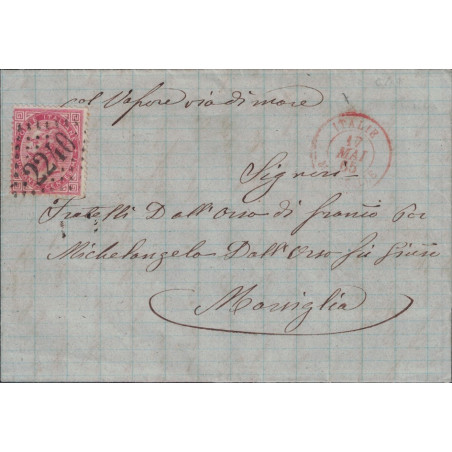 col Vapore via di mare
2240
ITALIE
17
MAI
Signori
Fratelli Dall'Orso di Franco per
Michelangelo Dall'Orso fu
Marsiglia